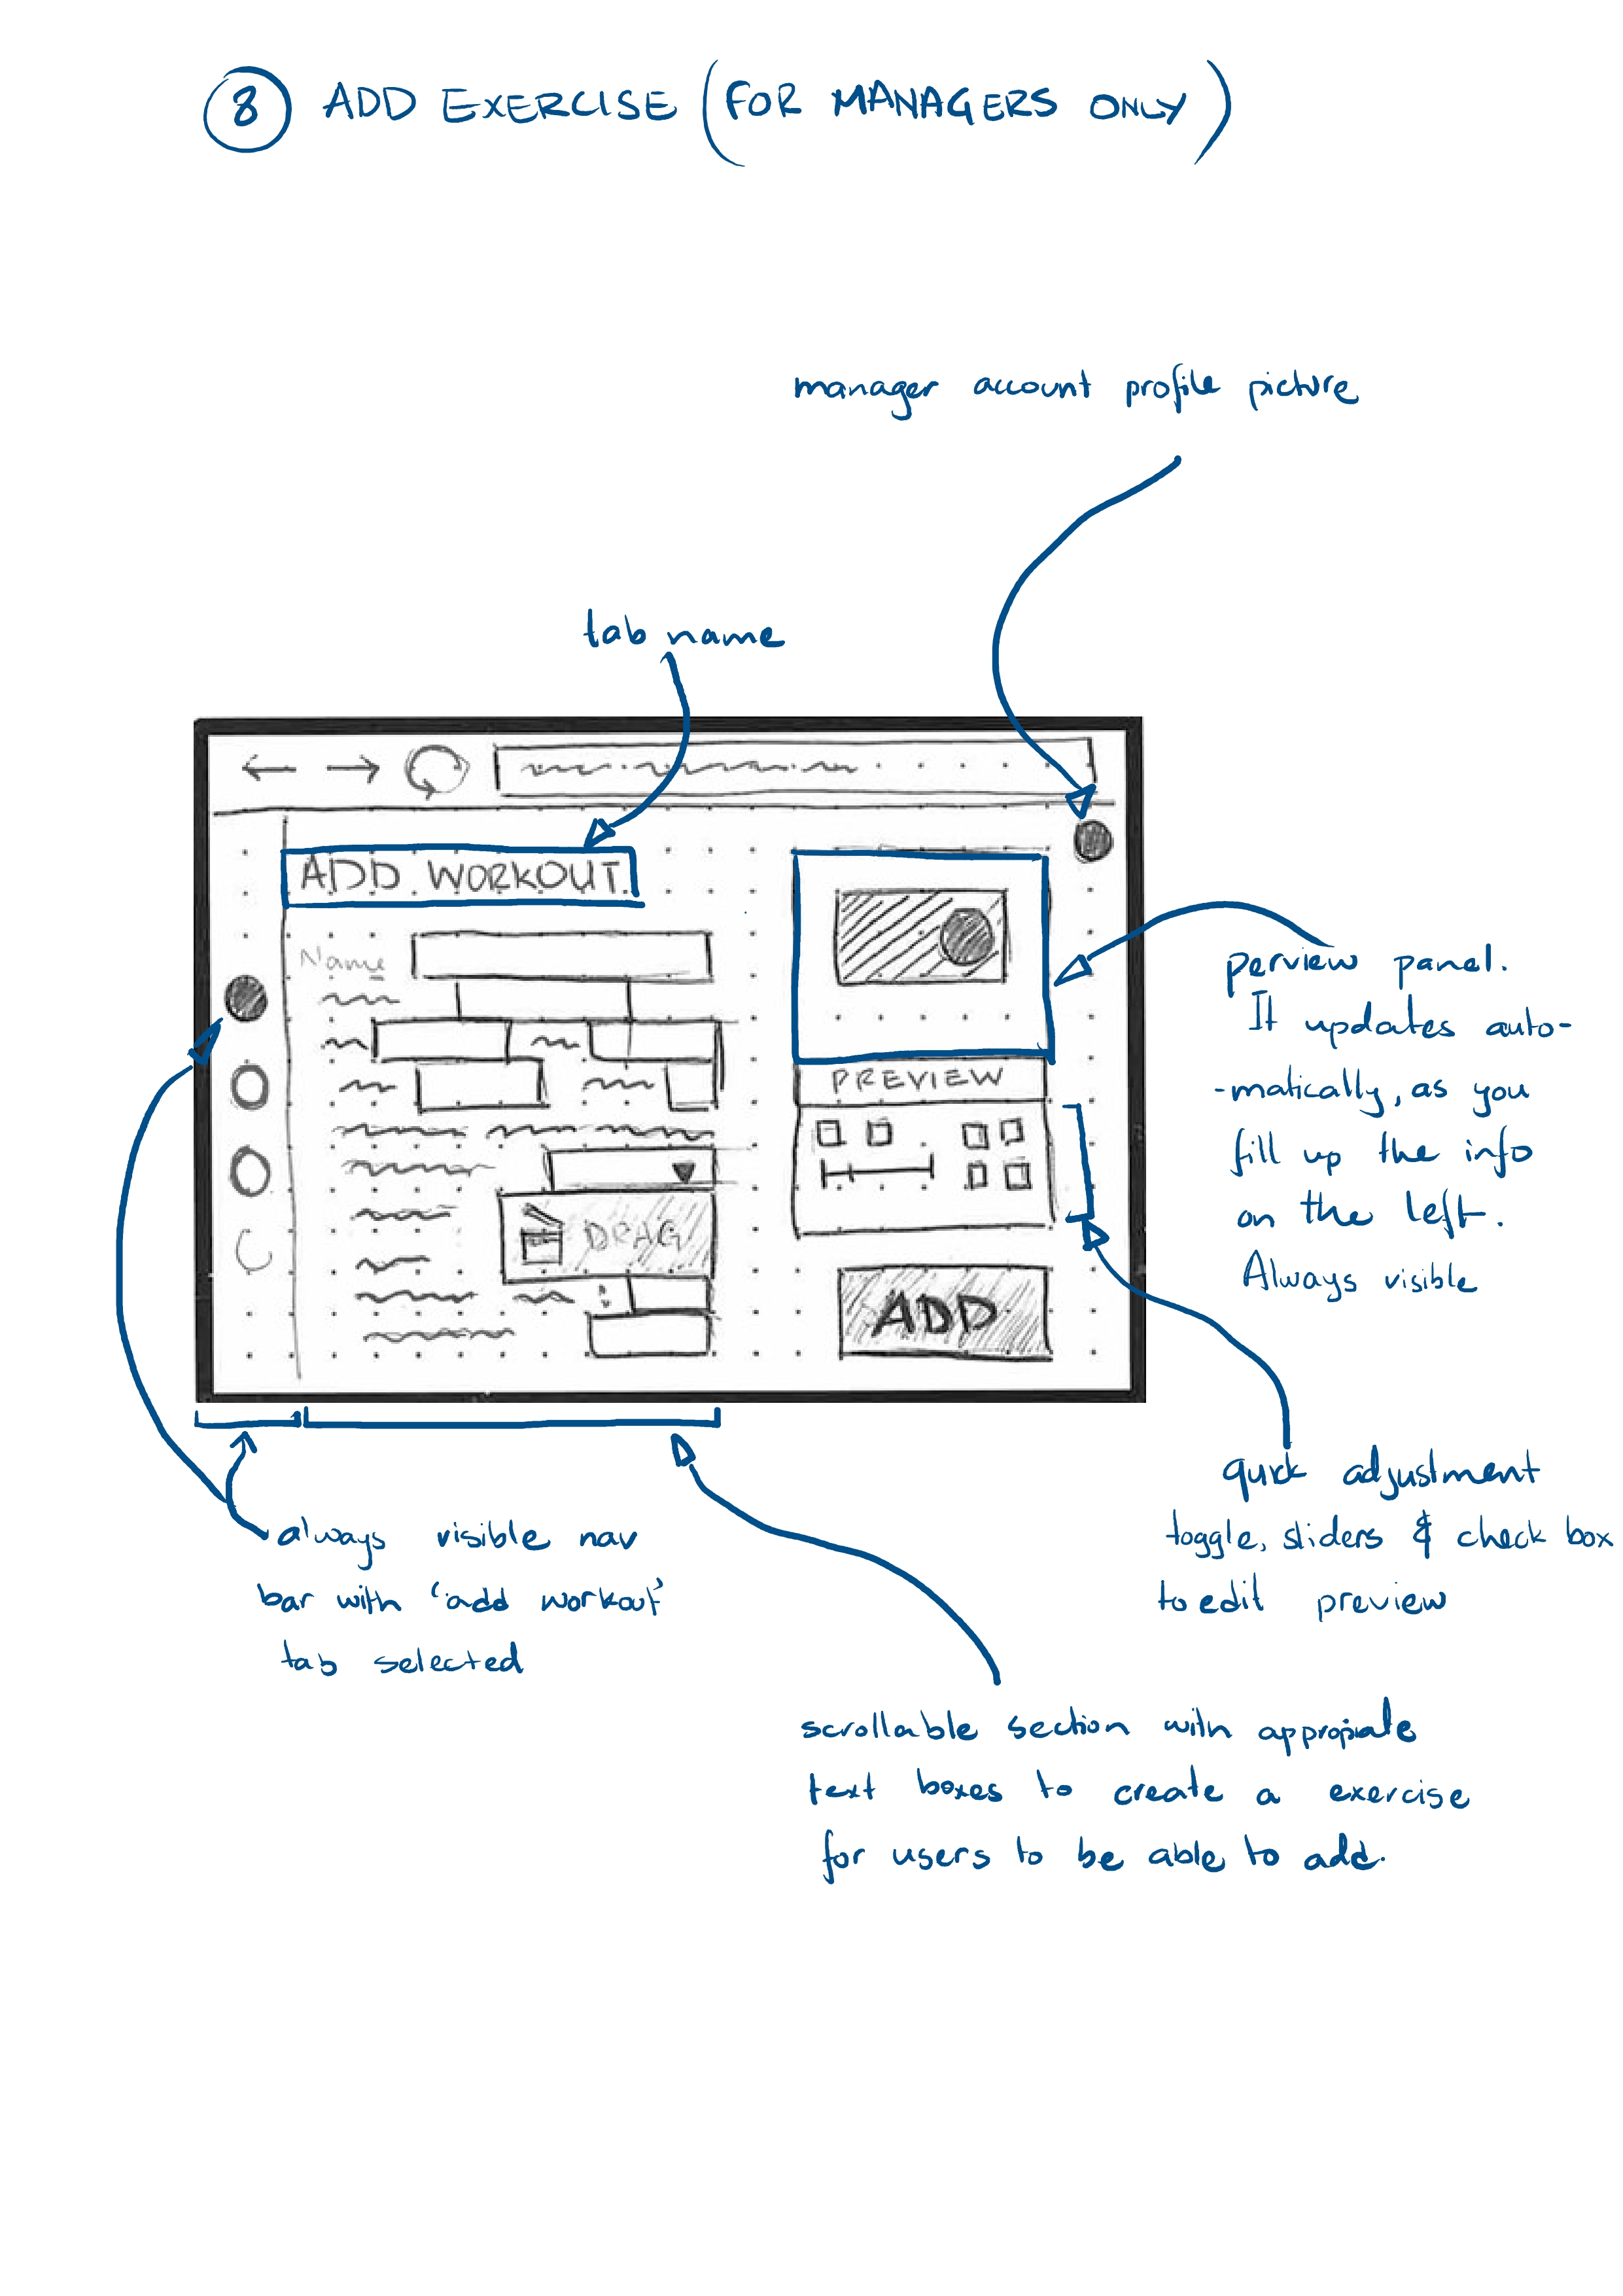 8 ADD EXERCISE (FOR MANAGERS ONLY)
manager account profile picture
tab name
ADD WORKOUT
Name
PREVIEW
DRAG
ADD
perview panel.
It updates auto-
-matically, as you
fill up the info
on the left.
Always visible
quick adjustment
toggle, sliders & check box
to edit preview
always visible nav
bar with 'add workout'
tab selected
scrollable section with appropiate
text boxes to create a exercise
for users to be able to add.